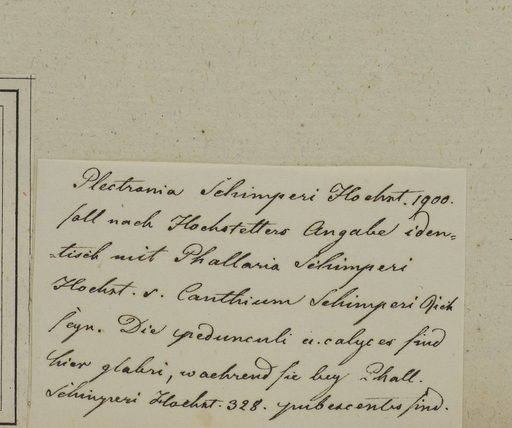 Plectronia Schimperi Hochst. 1900.
soll nach Hochstetters Angabe iden=
=tisch mit Phallaria Schimperi
Hochst. s. Canthium Schimperi Rich
seyn. Die pedunculi u. calyces sind
hier glabri, waehrend sie bey Phall.
Schimperi Hochst. 328. pubescentes sind.